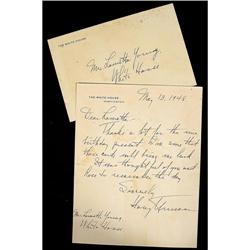 THE WHITE HOUSE
Mr Loretta Young,
White House
THE WHITE HOUSE
WASHINGTON
May 13, 1948
Dear Loretta:
Thanks a lot for the nice
birthday present. I'm sure that
those cards will bring me luck
It was thoughtful of you and
nice to remember the day.
Sincerely
Harry Truman
White House